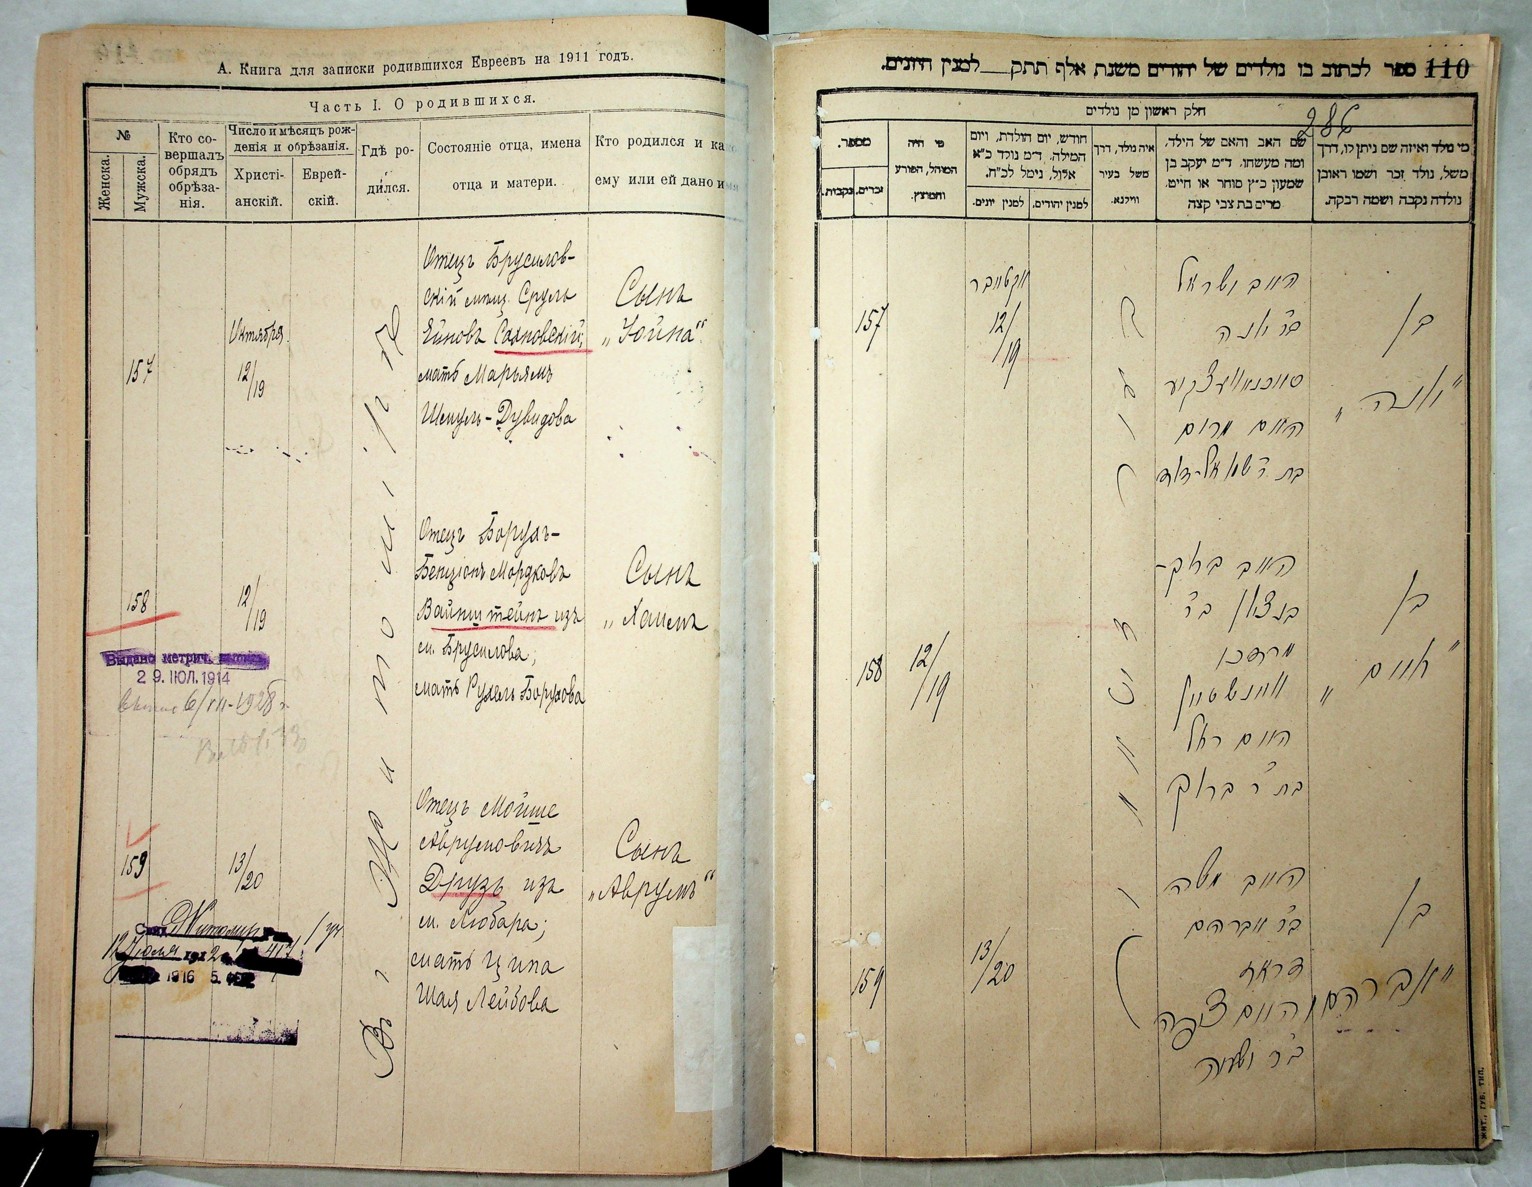 А. Книга для записки родившихся Евреевъ на 1911 годъ.
Часть I. О родившихся.
№
Женска.
Мужска.
Кто со-
вершалъ
обрядъ
обрѣза-
нія.
Число и мѣсяцъ рож-
денія и обрѣзанія.
Христі-
анскій.
Еврей-
скій.
Гдѣ ро-
дился.
Состояніе отца, имена
отца и матери.
Кто родился и ка
ему или ей дано и
157
Октября
12/19
Въ г. Житомирѣ
Отецъ Брусилов-
скій мѣщ. Сруль
Ейновъ Сахновскій;
мать Марьямъ
Шмуль-Дувидова
Сынъ
„Іойна“
158
12/19
Отецъ Борухъ-
Бенціонъ Мордковъ
Вайнштейнъ изъ
м. Брусилова;
мать Рухель Борухова
Сынъ
„Хаимъ
Выдано метрич.
29. ІЮЛ. 1914
6/VII-1928 г.
159
13/20
Отецъ Мойше
Аврумовичъ
Друзь изъ
м. Любара;
мать Ципа
Шая Лейбова
Сынъ
„Аврумъ“
Житомир
12 Іюля 1912
1916
110 ספר לכתוב בו נולדים של יהודים משנת אלף תתק__למנין היונים.
286
חלק ראשון מן נולדים
מספר.
נקבות.
זכרים.
מי היה
המוהל, הפורע
והמוצץ.
חודש, יום הולדת, ויום
המילה. ד״מ נולד כ״א
אלול, נימל לכ״ח.
למנין יונים.
למנין יהודים.
איה נולד, דרך
משל בעיר
ווילנא.
שם האב והאם של הילד,
ומה מעשהו. ד״מ יעקב בן
שמעון כ״ץ סוחר או חייט.
מרים בת צבי קצה
מי נולד ואיזה שם ניתן לו, דרך
משל, נולד זכר ושמו ראובן
נולדה נקבה ושמה רבקה.
157
אקטאבר
12/19
האב ישראל
ב״ר יונה
האם מרים
בת ר׳ שמואל-דוד
בן
„יונה“
158
12/19
האב ברוך-
בנציון ב״ר
מרדכי
וויינשטיין
האם רחל
בת ר׳ ברוך
בן
„חיים“
159
13/20
האב משה
ב״ר אברהם
דרוז
האם ציפה
בן
„אברהם“
ЖИТ., ГУБ. ТИП.